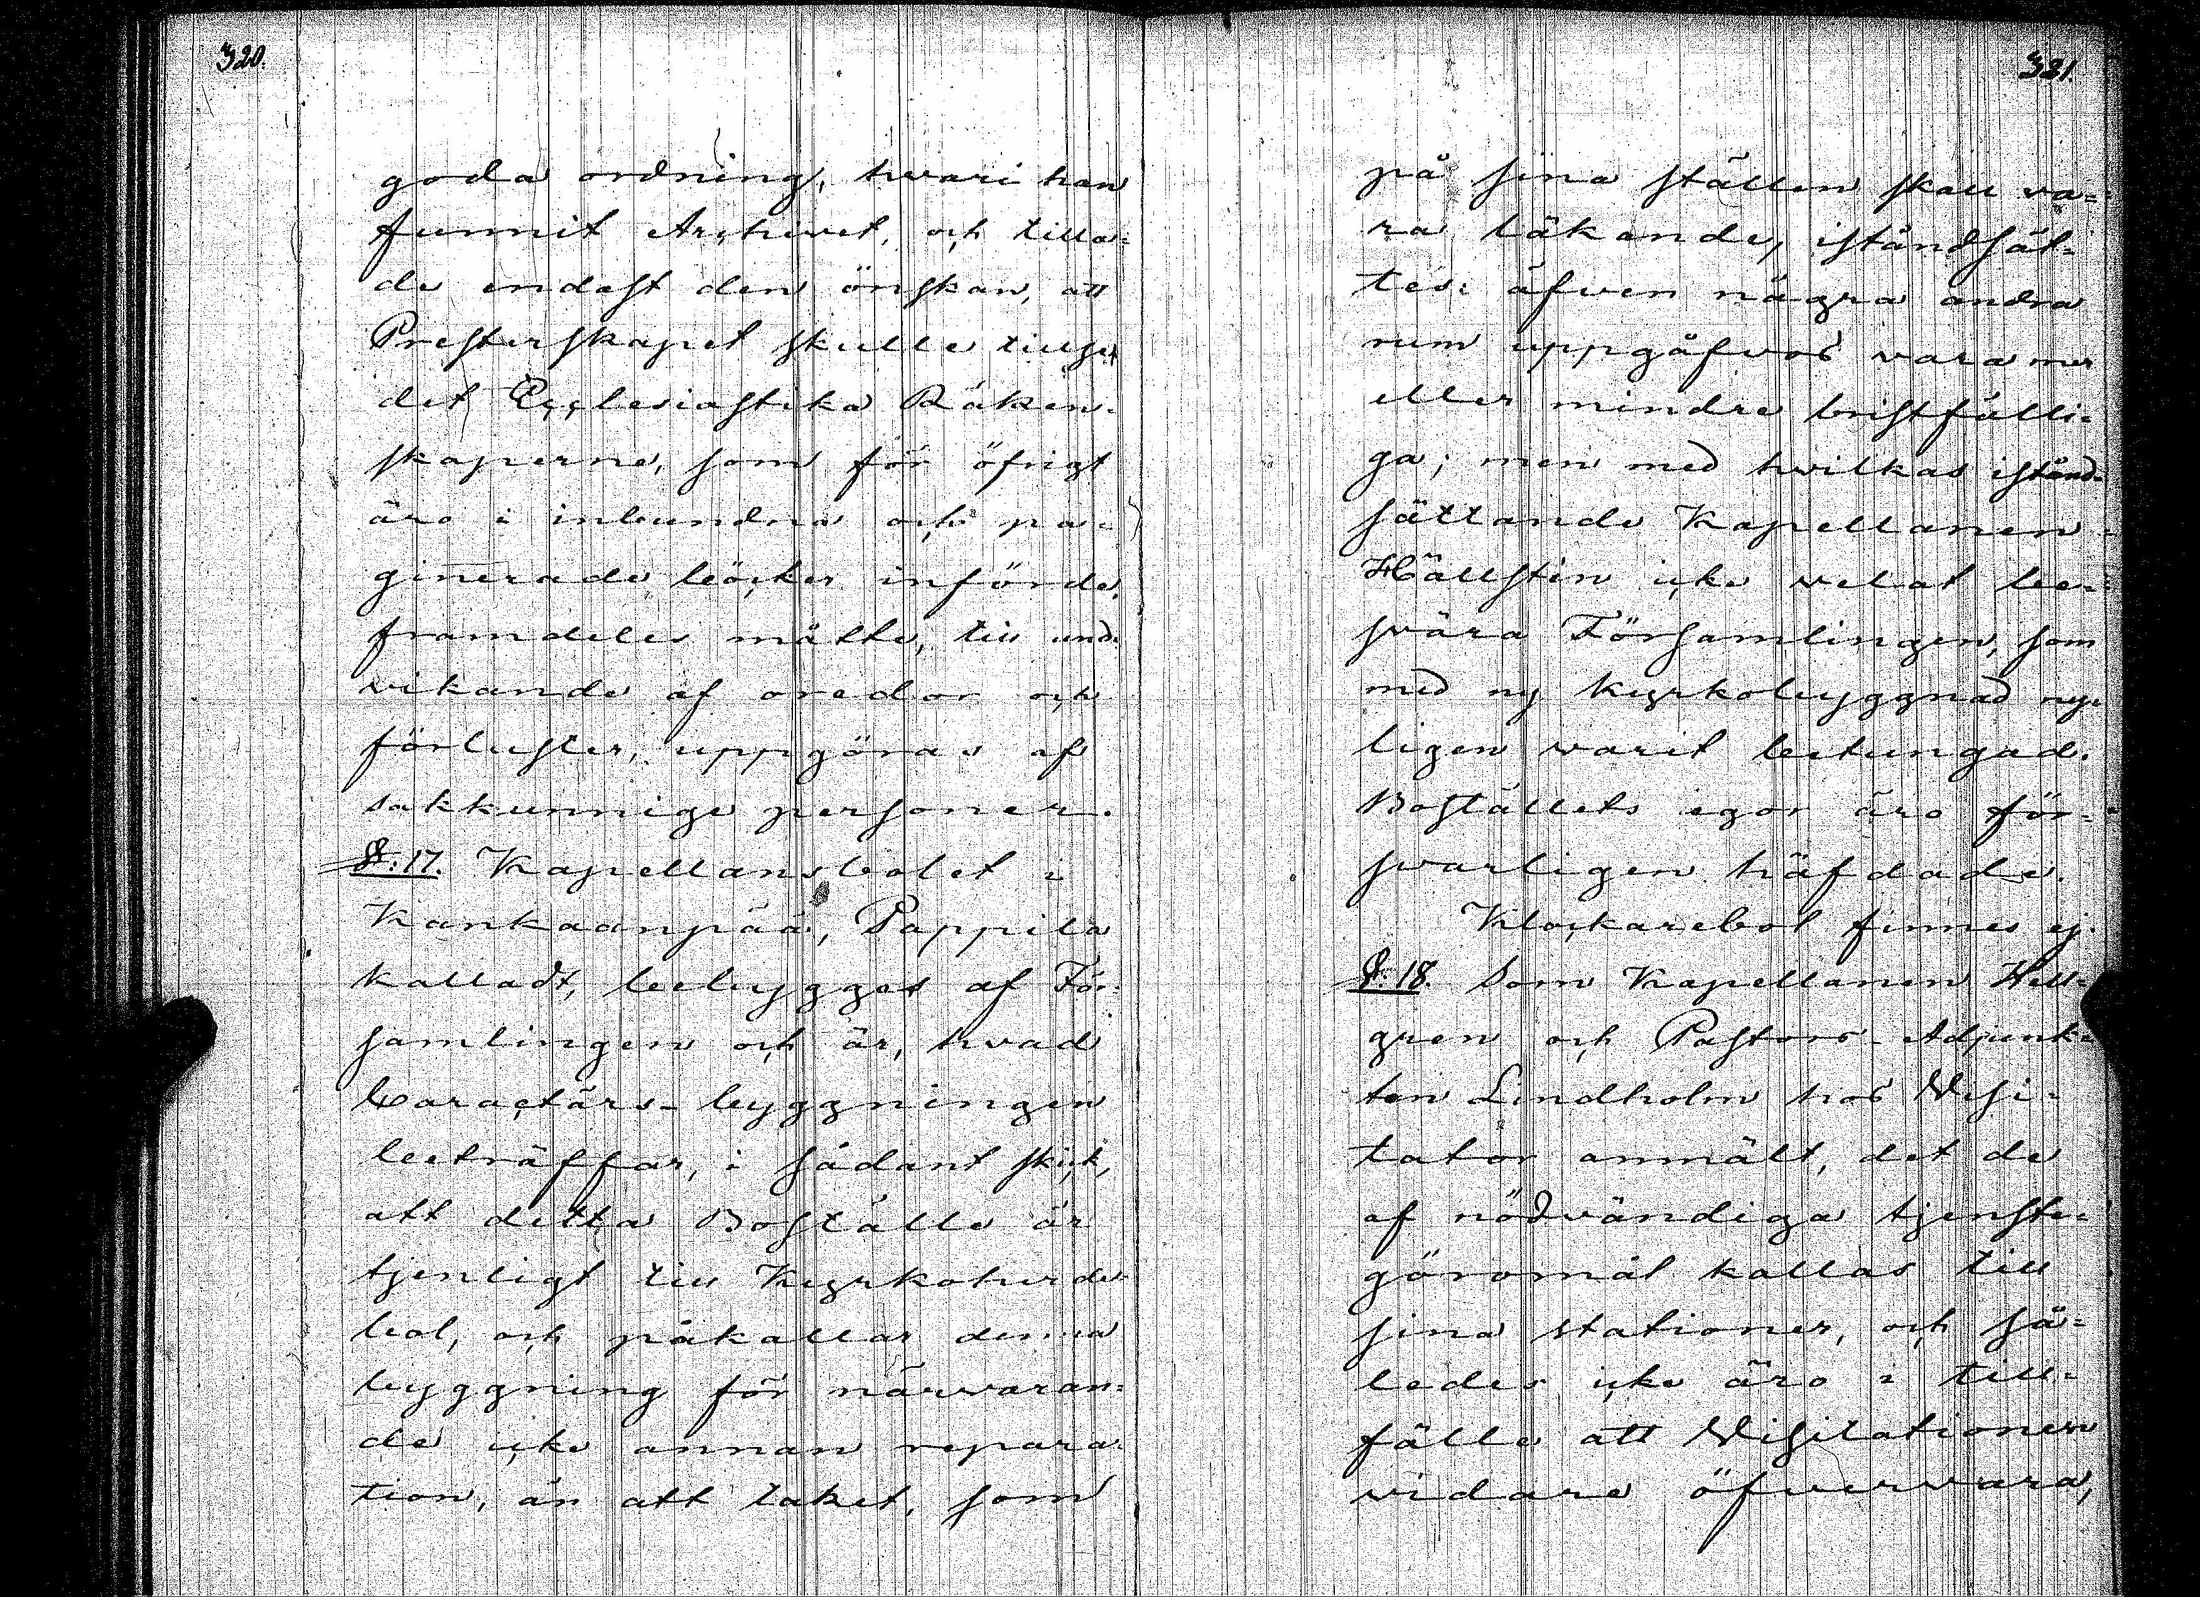 320.
goda ordning, hvari han
funnit Archivet, och tilla-
de endast den önskan, att
Presterskapet skulle tillse,
det Ecclesiastika Räken-
skaperne, som för öfrigt
äro i inbundna och pa-
ginerade böcker införde,
framdeles måtte, till und-
vikande af oredor och
förluster, uppgöras af
sakkunnige personer.
§: 17. Kapellansbolet i
Kankaanpää, Pappila
kalladt, bebygges af För-
samlingen och är, hvad
Caractärs-byggningen
beträffar, i sådant skick,
att detta Boställe är
tjenligt till Kyrkoherde-
bol, och påkallar denna
byggning för närvaran-
de icke annan repara-
tion, än att taket, som
321
på sina ställen skall va-
ra läkande, iståndsät-
tes: äfven några andra
rum uppgåfvos vara mer
eller mindre bristfälli-
ga; men med hvilkas istånd-
sättande Kapellanen
Hällstin icke velat be-
svära Församlingen, som
med ny kyrkobyggnad ny-
ligen varit betungad.
Boställets egor äro för-
svarligen häfdade.
Klockarebol finnes ej.
§: 18. Som Kapellanen Hell-
gren och Pastors-Adjunk-
ten Lindholm hos Visi-
tator anmält, det de
af nödvändiga tjenste-
göromål kallas till
sina stationer, och så-
ledes icke äro i till-
fälle att Visitationen
vidare öfvervara,